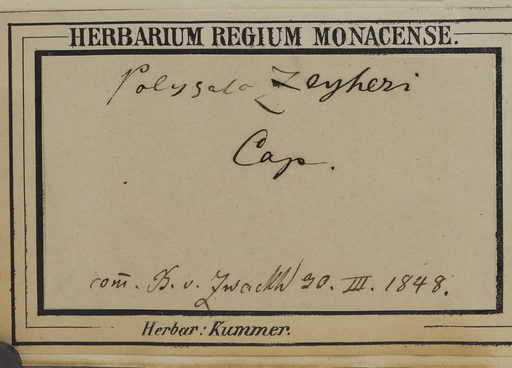 HERBARIUM REGIUM MONACENSE.
Polygala Zeyheri
Cap.
com̄. B. v. Zwackh 30. III. 1848.
Herbar: Kummer.